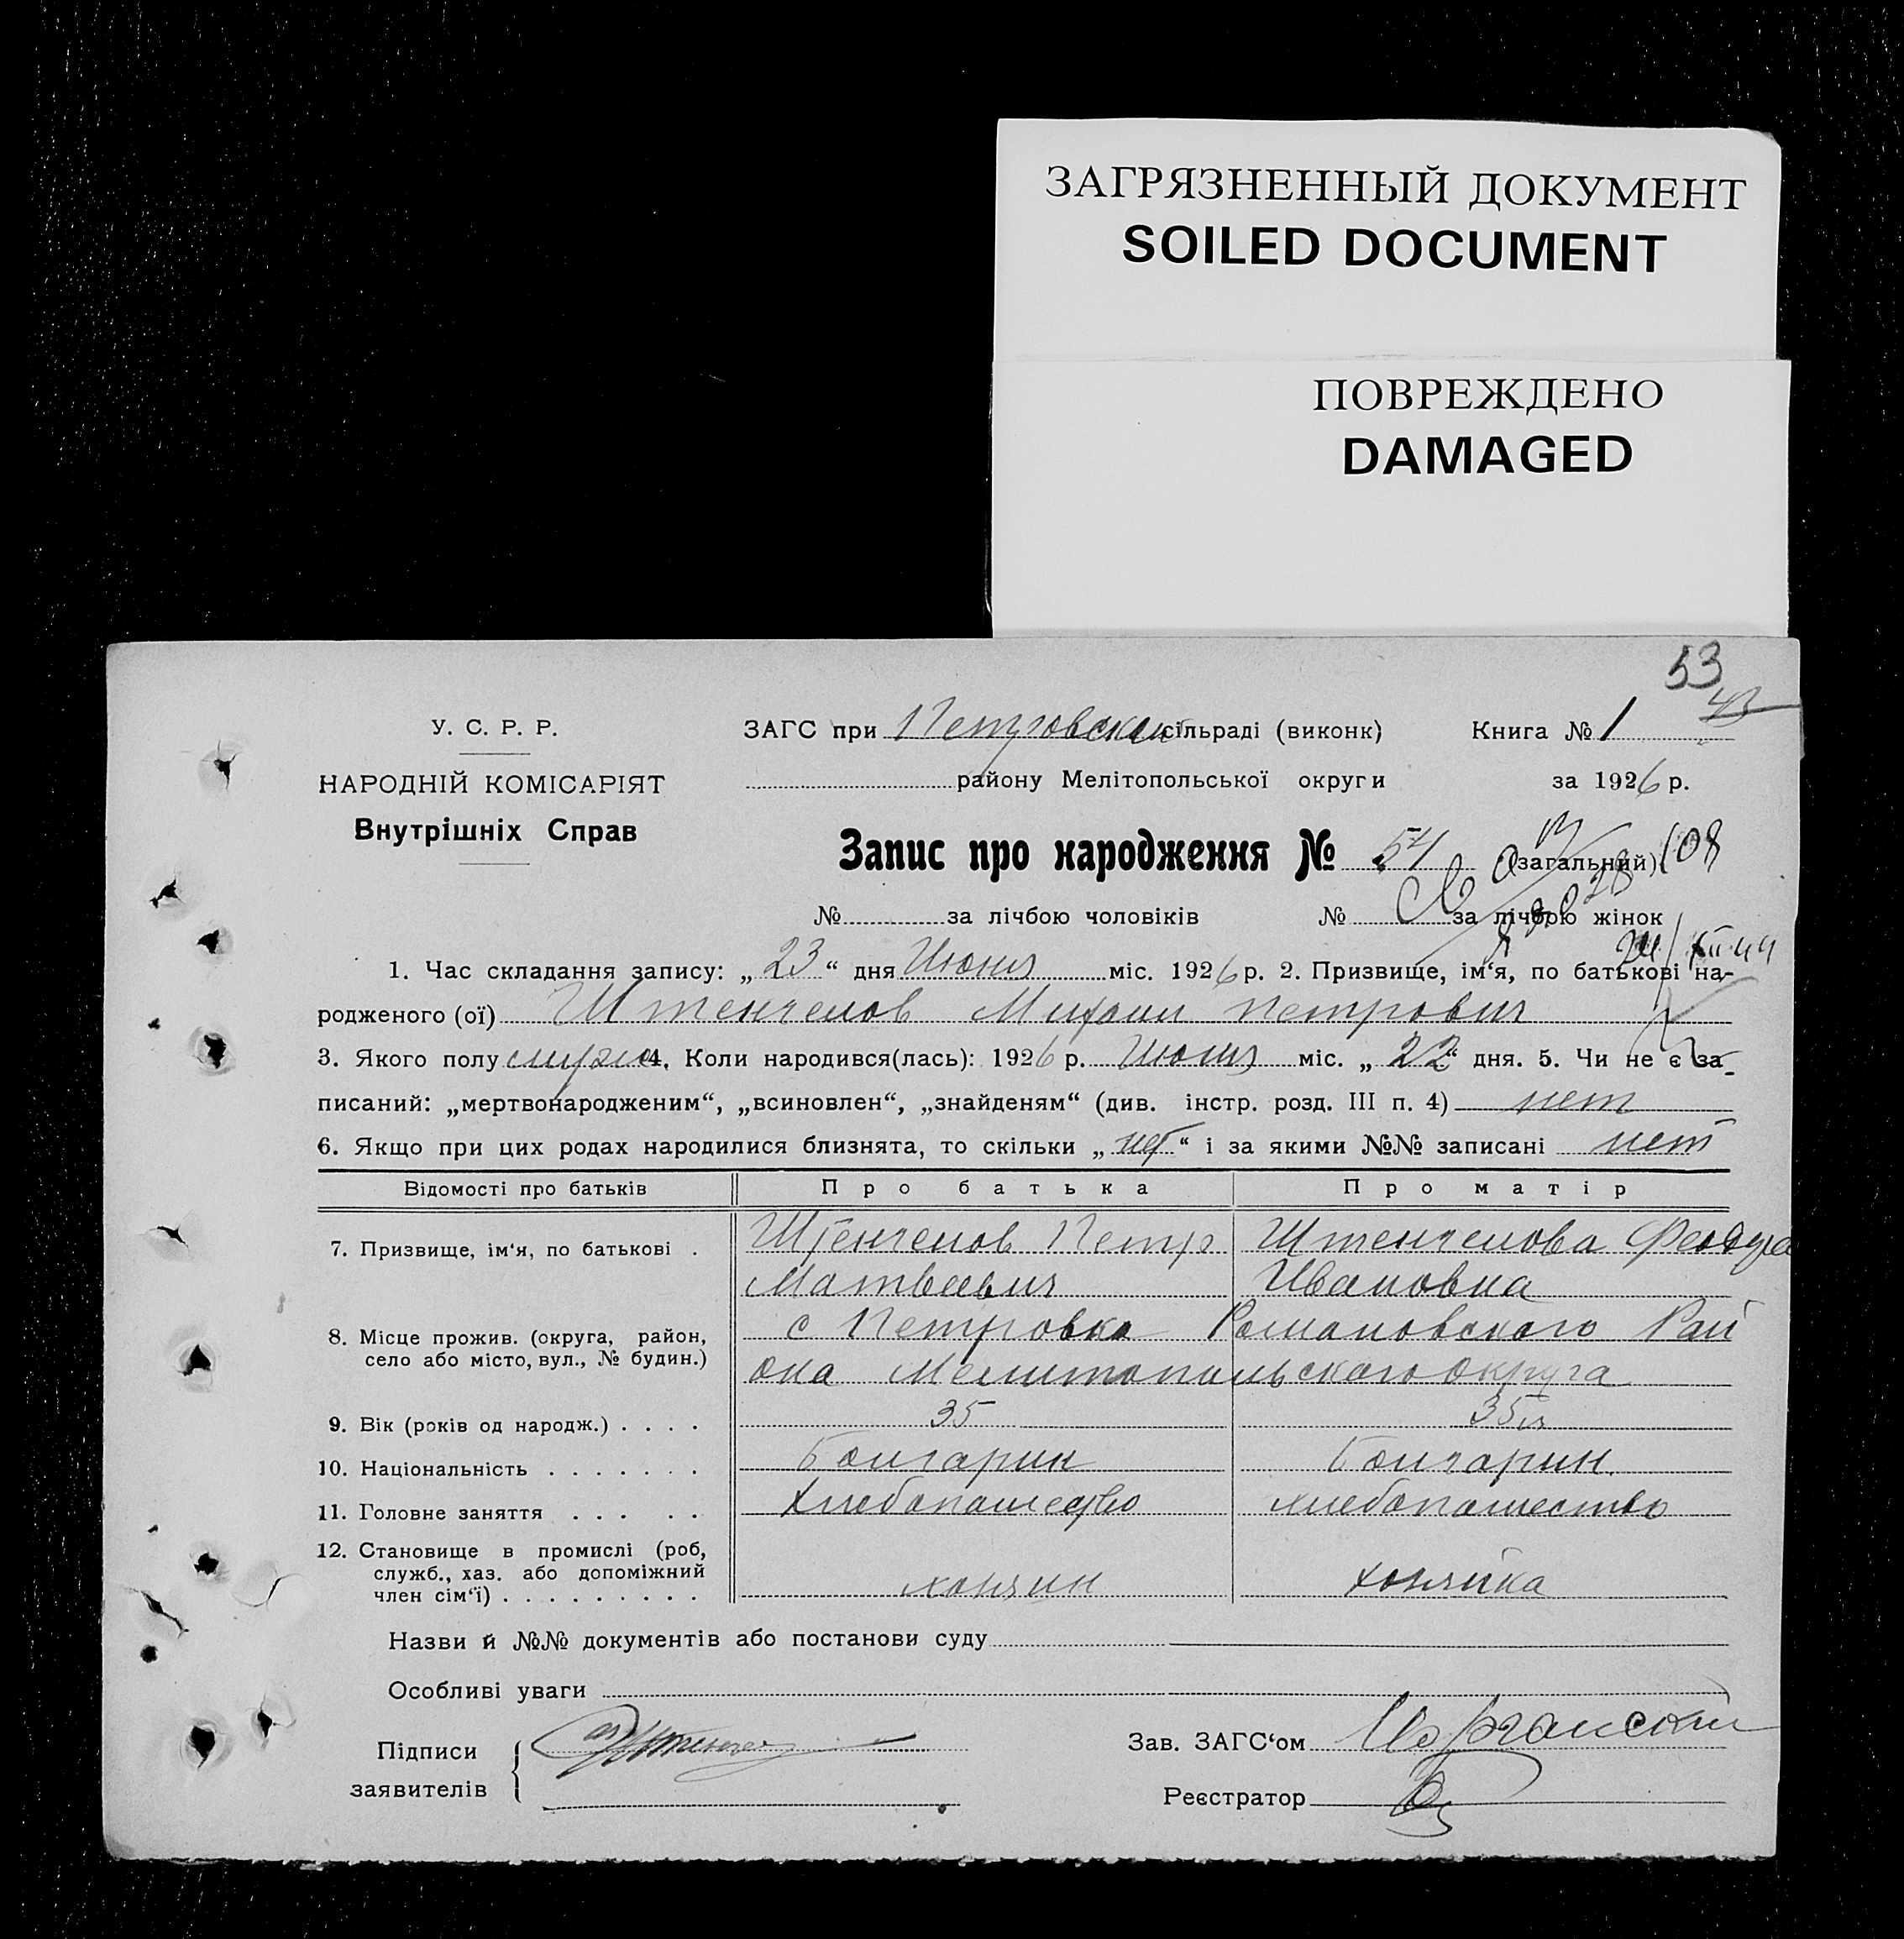 ЗАГРЯЗНЕННЫЙ ДОКУМЕНТ
SOILED DOCUMENT
ПОВРЕЖДЕНО
DAMAGED
53
43
У. С. Р. Р.
НАРОДНІЙ КОМІСАРІЯТ
Внутрішніх Справ
ЗАГС при Петровской сільраді (виконк) Книга № 1
району Мелітопольської округи за 1926 р.
Запис про народження № 54 (загальний) 108
№ за лічбою чоловіків № за лічбою жінок
1. Час складання запису: „23“ дня Июня міс. 1926 р. 2. Призвище, ім‘я, по батькові на-
родженого (ої) Штенчелов Михаил Петрович
3. Якого полу мужс 4. Коли народився(лась): 1926 р. Июня міс. „22“ дня. 5. Чи не є за-
писаний: „мертвонародженим“, „всиновлен“, „знайденям“ (див. інстр. розд. III п. 4) нет
6. Якщо при цих родах народилися близнята, то скільки „нет“ і за якими №№ записані нет
Відомості про батьків Про батька Про матір
7. Призвище, ім‘я, по батькові . Штенчелов Петр Матвеевич Штенчелова Ивановна
8. Місце прожив. (округа, район, село або місто, вул., № будин.) с Петровка Романовского Рай
она Мелитопольского округа
9. Вік (років од народж.) . . . . 35 35
10. Національність . . . . . . . Болгарин Болгарин.
11. Головне заняття . . . . . Хлебопашество хлебопашество
12. Становище в промислі (роб,
служб., хаз. або допоміжний
член сім‘ї) . . . . . . . . . хозяин хозяйка
Назви й №№ документів або постанови суду
Особливі уваги
Підписи
заявителів
Зав. ЗАГС‘ом
Реєстратор